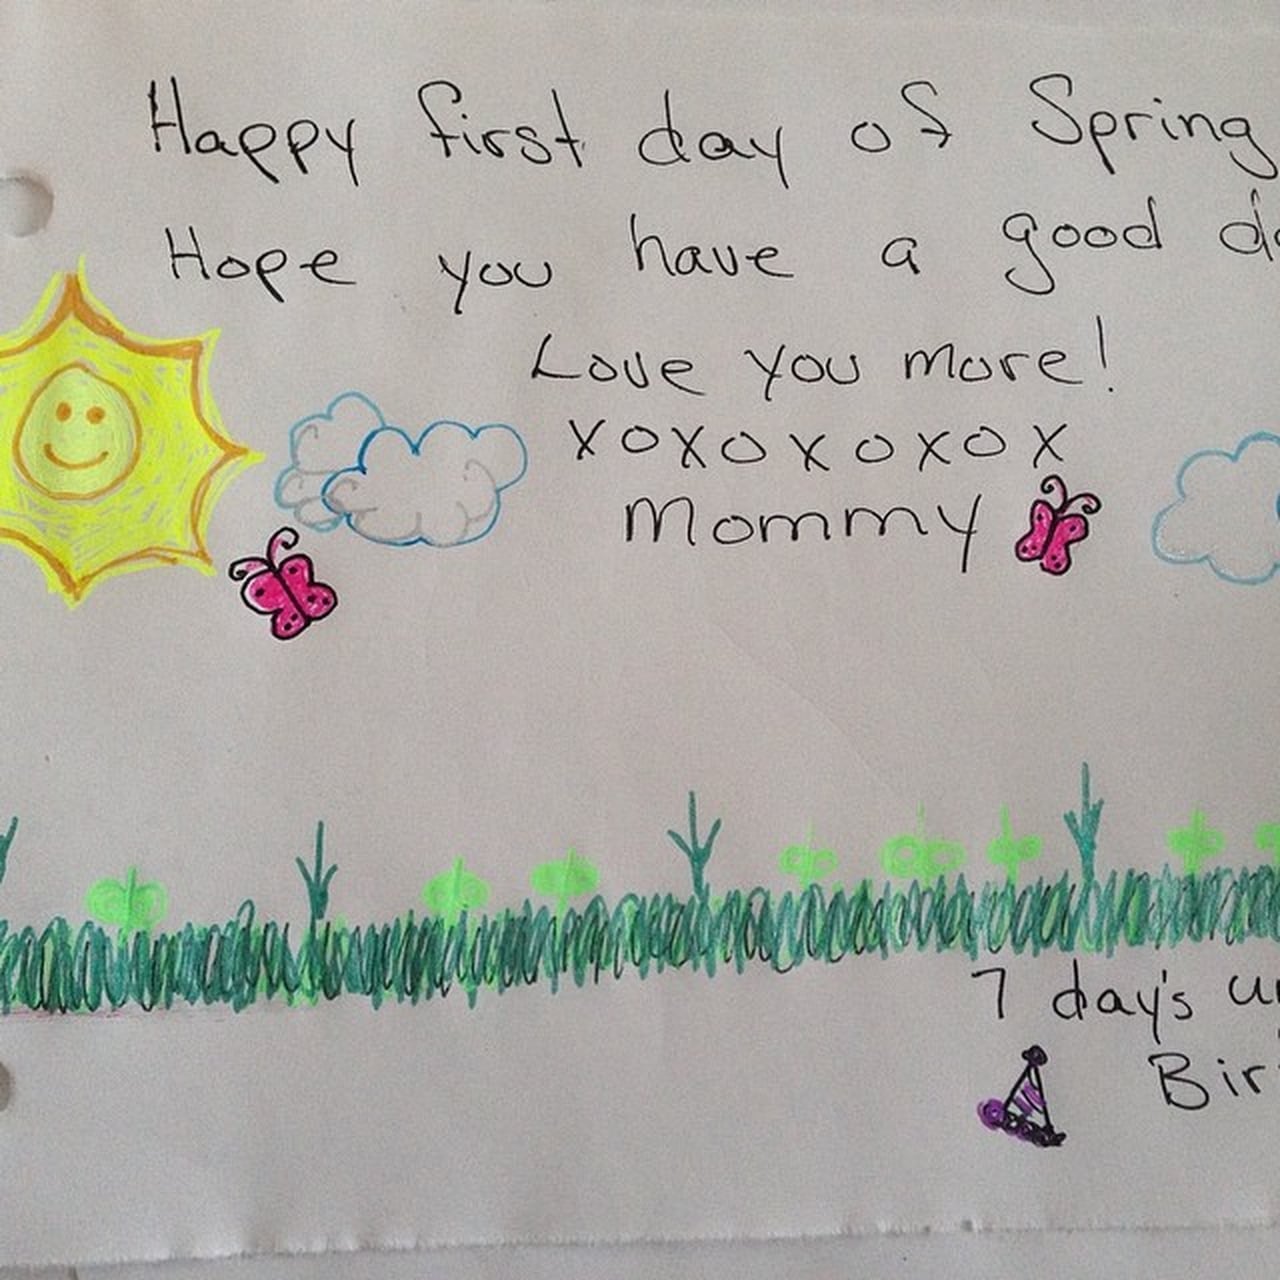 Happy first day of Spring
Hope you have a good da
Love you more!
xoxoxoxox
Mommy
7 day's un
Bir